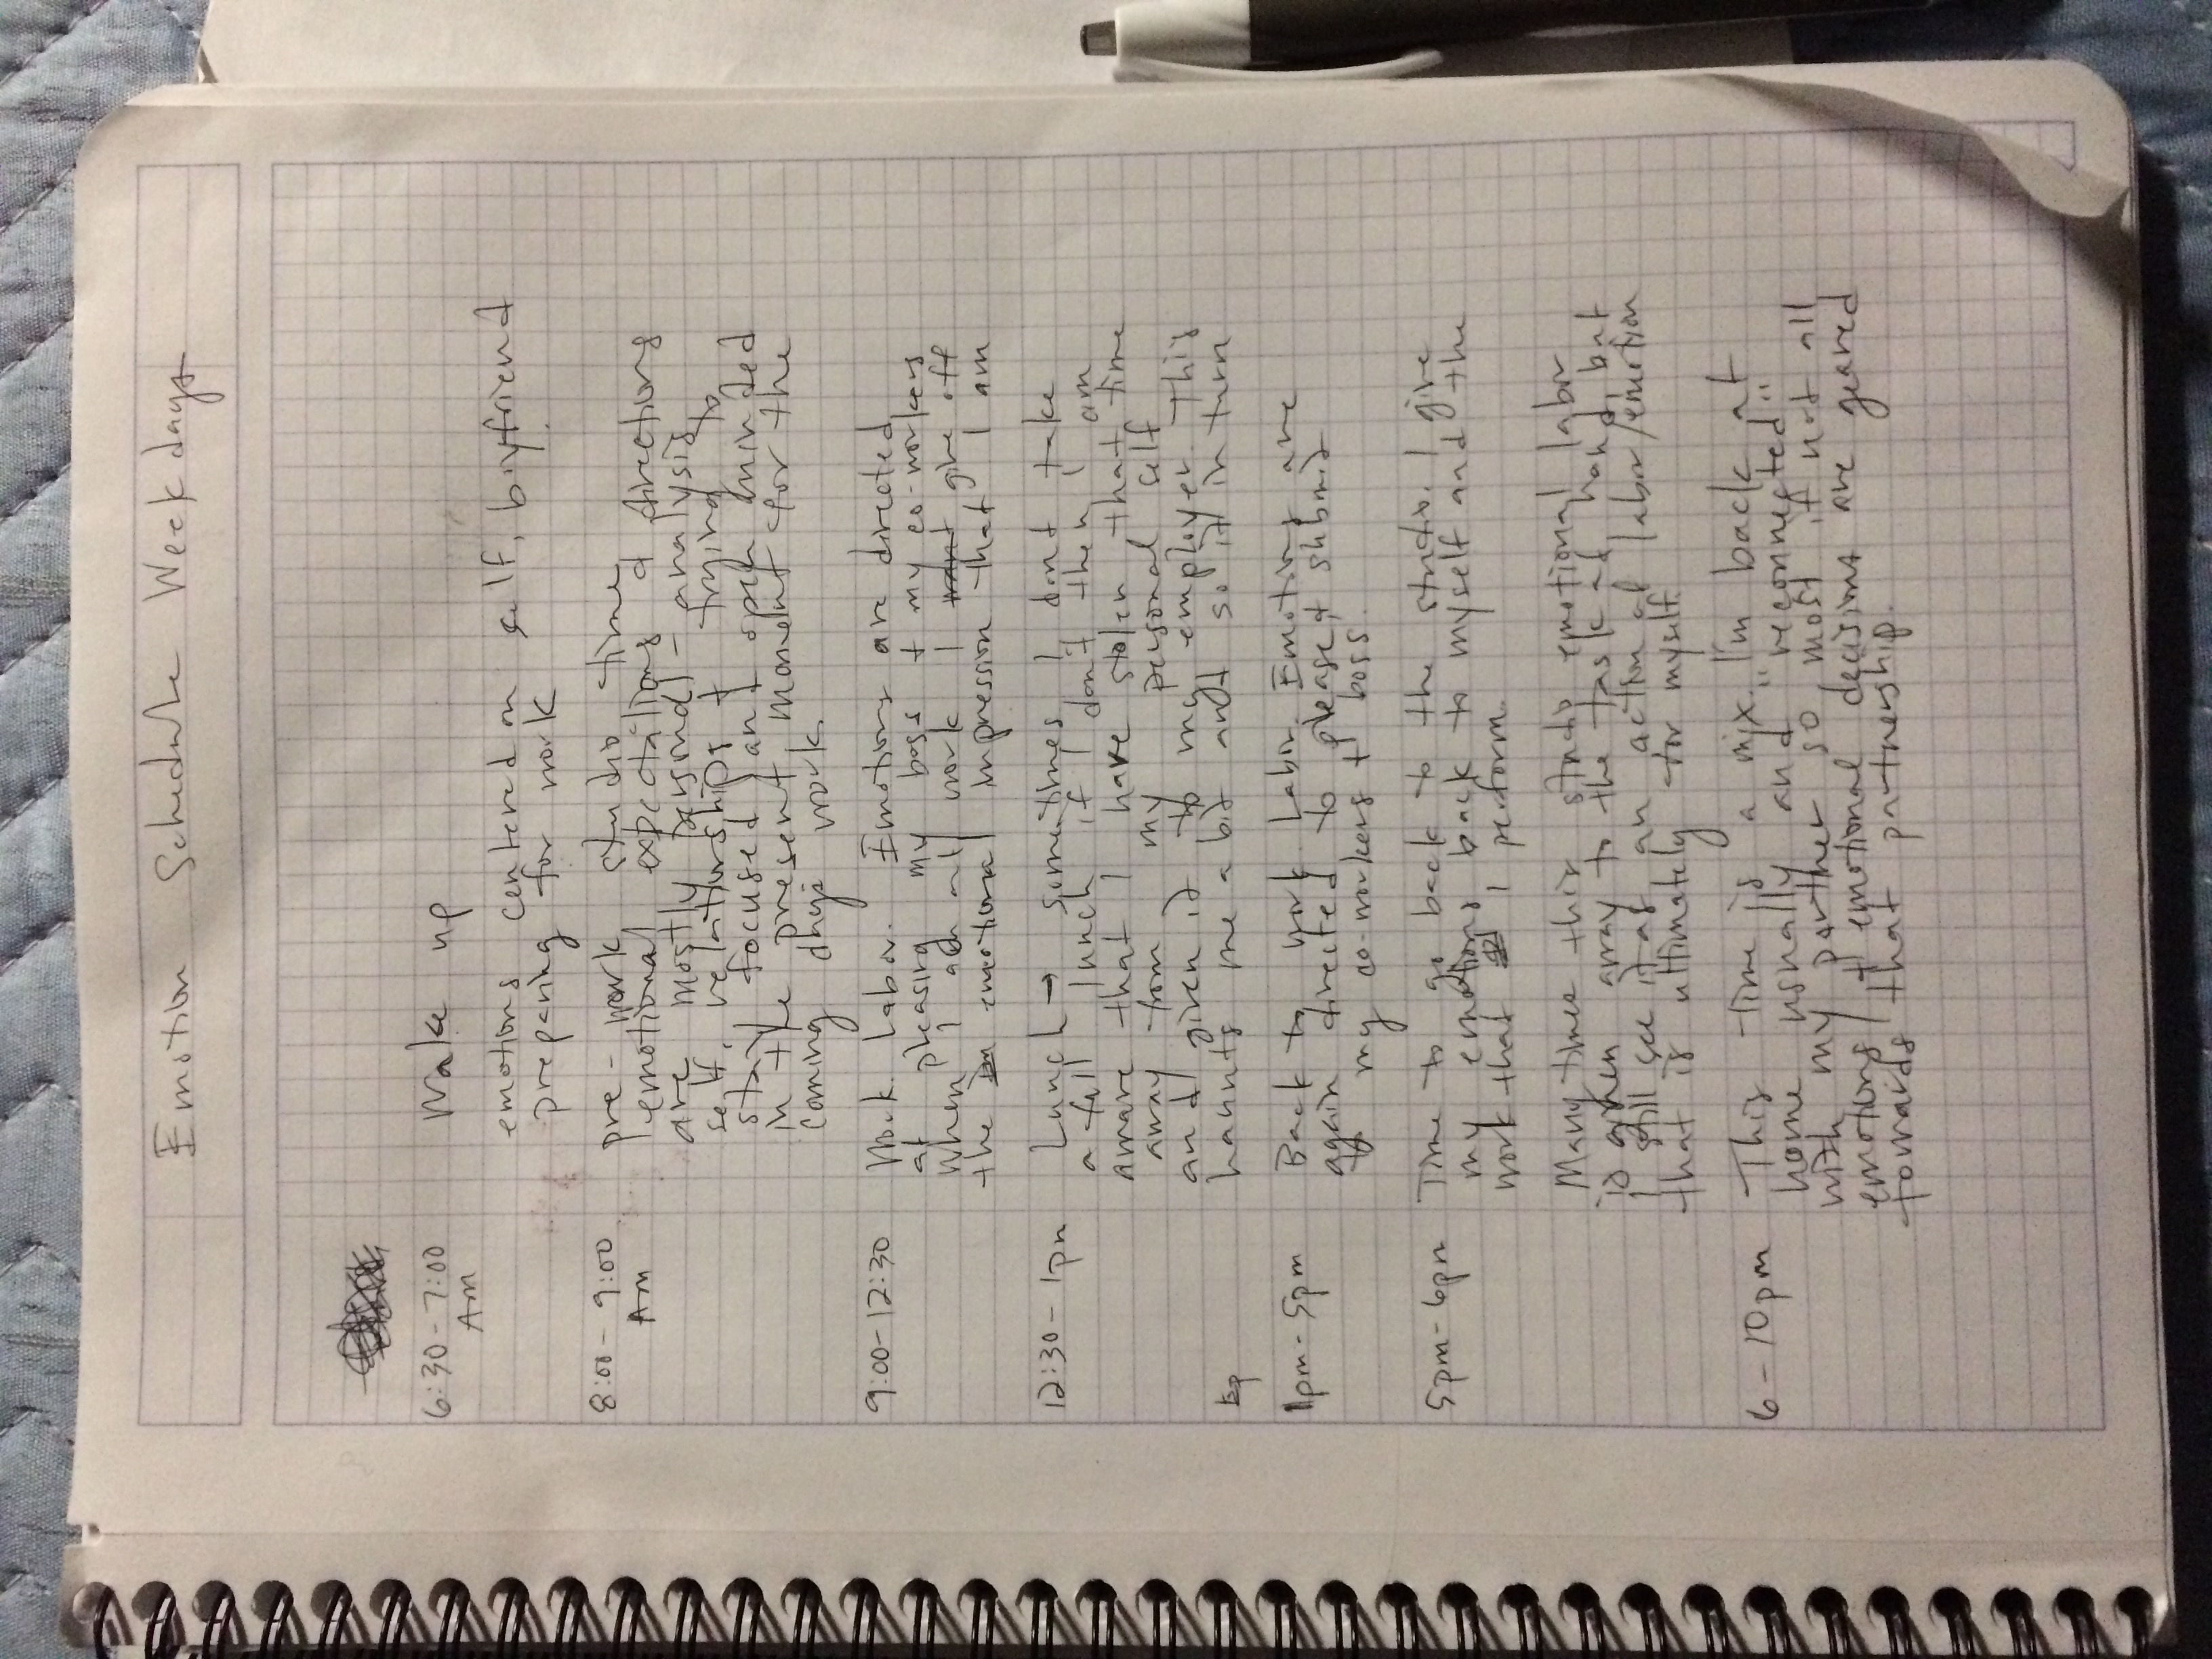 Emotion Schedule Week days
6:30 - 7:00 Wake up
Am
emotions centered on self, boyfriend
preparing for work
8:00 - 9:00 pre-work studio time
Am emotional expectations & directions
are mostly personal - analysis
self, relationships & trying to
stay focused and open minded
in the present moment for the
coming days work.
9:00-12:30 Work Labor. Emotions are directed
at pleasing my boss & my co-workers
When I am at work I want give off
the emotional impression that I am
12:30 - 1pm Lunch → Sometimes I don't take
a full lunch if I don't then am
aware that I have stolen that time
away from my personal self
and given it to my employer. This
haunts me a bit and so it in turn
1pm - 5pm Back to work Labor. Emotions are
again directed to please & submit
my co-workers & boss.
5pm - 6pm Time to go back to the studio. I give
my emotions back to myself and the
work that I perform.
Many times this studio emotional labor
is given away to the task at hand, but
I still see it as an action of labor/emotion
that is ultimately for myself.
6 - 10pm This time is a mix. I'm back at
home usually and "reconnected"
with my partner so most if not all
emotions/& emotional decisions are geared
towards that partnership.